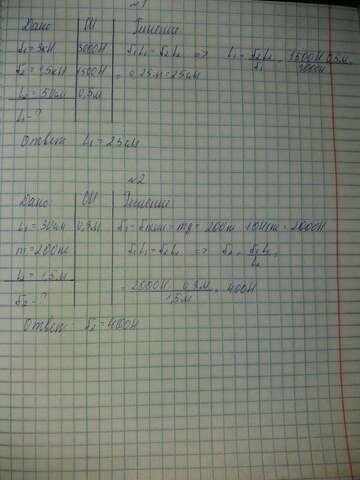 №1
Дано СИ Решение
F₁ = 3кН 3000Н F₁L₁ = F₂L₂ => L₁ = F₂L₂/F₁ = 1500Н·0,5м/3000Н
F₂ = 1,5кН 1500Н = 0,25м = 25см
L₂ = 50см 0,5м
L₁ - ?
Ответ: L₁ = 25см
№2
Дано: СИ Решение
L₁ = 30см 0,3м F₁ - Fтяж = mg = 200кг · 10Н/кг = 2000Н
m = 200кг F₁L₁ = F₂L₂ => F₂ = F₁L₁/L₂ =
L₂ = 1,5м = 2000Н · 0,3м/1,5м = 400Н
F₂ - ?
Ответ: F₂ = 400Н